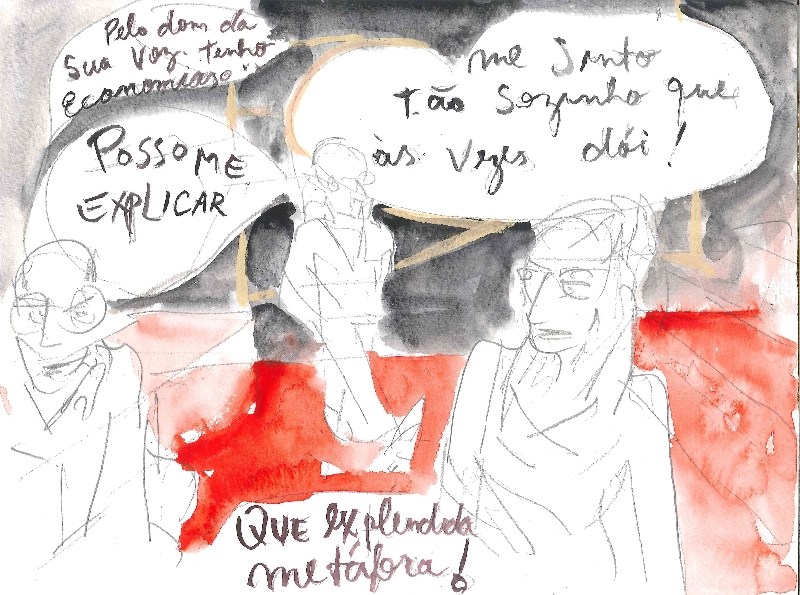 Pelo dom da
Sua Voz. tenho
economias..
POSSO ME
EXPLICAR
me sinto
tão Sozinho que
às vezes dói!
QUE explendida
metáfora!